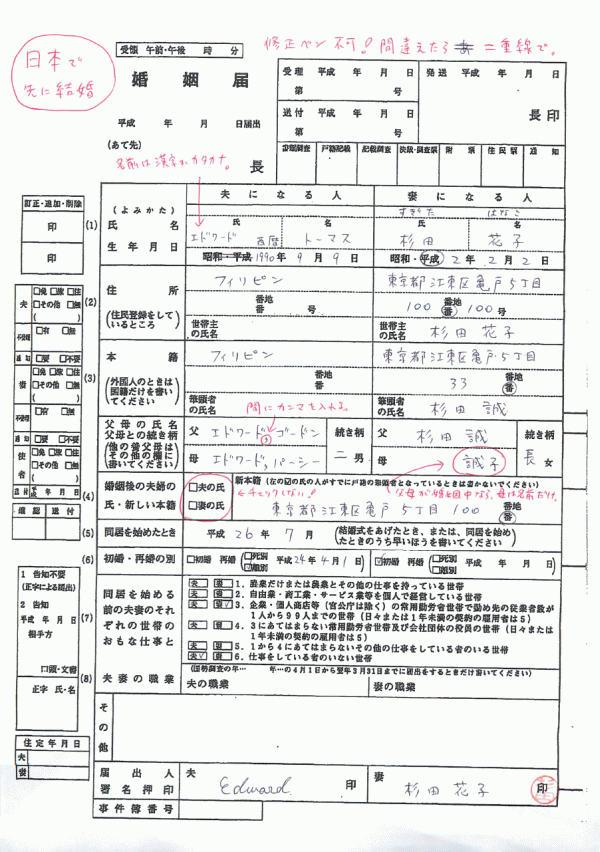 日本で
先に結婚
受領 午前・午後 時 分
修正ペン不可!間違えたら 二重線で。
婚姻届
平成 年 月 日届出
(あて先)
長
名前は漢字かカタカナ。
受理 平成 年 月 日
第 号
発送 平成 年 月 日
送付 平成 年 月 日
第 号
長印
書類調査 戸籍記載 記載調査 附票 住民票 通知
訂正・追加・削除
印
印
(1)
夫になる人 妻になる人
(よみかた) すぎた はなこ
氏名
氏 名 氏 名
エドワード トーマス 杉田 花子
生年月日
昭和・平成 西暦 1990年9月9日 昭和・平成 2年2月2日
(2)
住所
(住民登録をしているところ)
フィリピン 東京都江東区亀戸5丁目
番地 番 号 100 番地 番 100号
世帯主の氏名 世帯主の氏名 杉田花子
(3)
本籍
(外国人のときは国籍だけを書いてください)
フィリピン 東京都江東区亀戸5丁目
番地 番 33 番地 番
筆頭者の氏名 筆頭者の氏名 杉田 誠
間にカンマを入れる。
父母の氏名
父母との続き柄
(他の養父母はその他の欄に書いてください)
父 エドワード, ゴードン 続き柄 父 杉田 誠 続き柄
母 エドワード, パーシー 二男 母 誠子 長女
父母が婚姻中なら、母は名前だけ。
(4)
婚姻後の夫婦の氏・新しい本籍
□夫の氏
□妻の氏
←チェックしない!
新本籍(左の☑の氏の人がすでに戸籍の筆頭者となっているときは書かないでください)
東京都江東区亀戸5丁目 100 番地 番
(5)
同居を始めたとき
平成 26年 7月
(結婚式をあげたとき、または、同居を始めたときのうち早いほうを書いてください)
(6)
初婚・再婚の別
□初婚 再婚 □死別 □離別 平成24年4月1日 ☑初婚 再婚 □死別 □離別 年 月 日
(7)
同居を始める前の夫妻のそれぞれの世帯のおもな仕事と
夫 妻 1.農業だけまたは農業とその他の仕事を持っている世帯
夫 妻 2.自由業・商工業・サービス業等を個人で経営している世帯
夫 妻 3.企業・個人商店等(官公庁は除く)の常用勤労者世帯で勤め先の従業者数が1人から99人までの世帯(日々または1年未満の契約の雇用者は5)
夫 妻 4.3にあてはまらない常用勤労者世帯及び会社団体の役員の世帯(日々または1年未満の契約の雇用者は5)
夫 妻 5.1から4にあてはまらないその他の仕事をしている者のいる世帯
夫 妻 6.仕事をしている者のいない世帯
(8)
夫妻の職業
(国勢調査の年… 年…の4月1日から翌年3月31日までに届出をするときだけ書いてください)
夫の職業 妻の職業
その他
届出人署名押印
夫 Edward 印 妻 杉田花子 印
事件簿番号
夫 □免 □旅 □住
□その他 □無
( )
□有 □無
通知 □要 □不要
妻 □免 □旅 □住
□その他 □無
( )
□有 □無
通知 □要 □不要
使者 □免 □旅 □住
□その他 □無
( )
送付 平成 年 月 日
確認 送付
1 告知不要
(正字による届出)
2 告知
平成 年 月 日
相手方
□口頭・文書
正字 氏・名
住定年月日
夫
妻